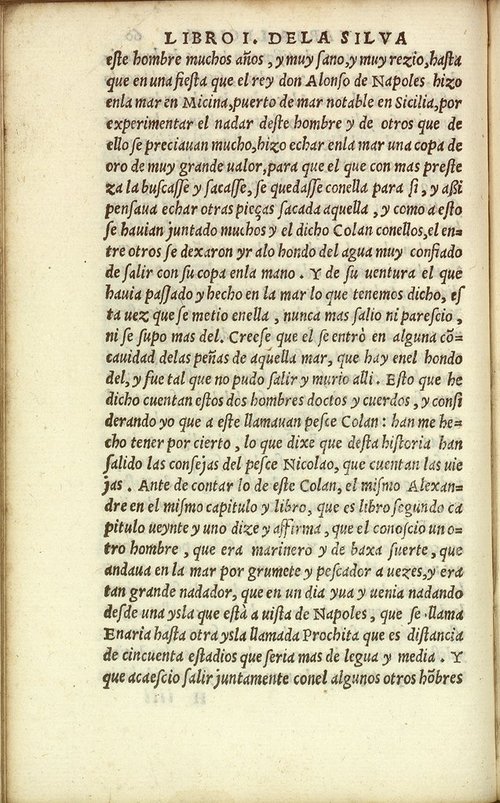 LIBRO I. DELA SILVA
este hombre muchos años, y muy sano, y muy rezio, hasta
que en una fiesta que el rey don Alonso de Napoles hizo
enla mar en Micina, puerto de mar notable en Sicilia, por
experimentar el nadar deste hombre y de otros que de
ello se preciauan mucho, hizo echar enla mar una copa de
oro de muy grande ualor, para que el que con mas preste
za la buscasse y sacasse, se quedasse conella para si, y aßi
pensaua echar otras pieças sacada aquella, y como a esto
se hauian juntado muchos y el dicho Colan conellos, el en=
tre otros se dexaron yr alo hondo del agua muy confiado
de salir con su copa enla mano. Y de su uentura el que
hauia passado y hecho en la mar lo que tenemos dicho, es
ta uez que se metio enella, nunca mas salio ni parescio,
ni se supo mas del. Creese que el se entrò en alguna cõ=
cauidad delas peñas de aquella mar, que hay enel hondo
del, y fue tal que no pudo salir y murio alli. Esto que he
dicho cuentan estos dos hombres doctos y cuerdos, y consi
derando yo que a este llamauan pesce Colan: han me he=
cho tener por cierto, lo que dixe que desta historia han
salido las consejas del pesce Nicolao, que cuentan las uie
jas. Ante de contar lo de este Colan, el mismo Alexan=
dre en el mismo capitulo y libro, que es libro segundo ca
pitulo ueynte y uno dize y affirma, que el conoscio un o=
tro hombre, que era marinero y de baxa suerte, que
andaua en la mar por grumete y pescador a uezes, y era
tan grande nadador, que en un dia yua y uenia nadando
desde una ysla que està a uista de Napoles, que se llama
Enaria hasta otra ysla llamada Prochita que es distancia
de cincuenta estadios que seria mas de legua y media. Y
que acaescio salir juntamente conel algunos otros hõbres